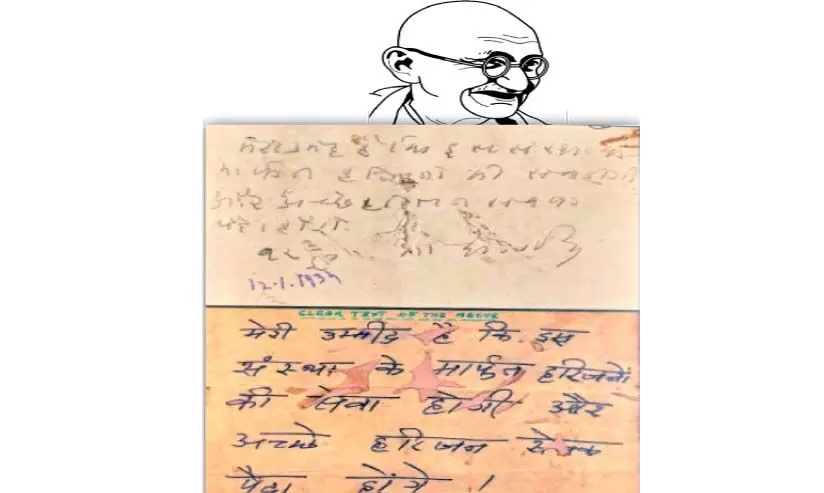 मेरी उम्मीद है कि इस संस्था के
मार्फत हरिजनों की सेवा होगी
और अच्छे हरिजन सेवक
पैदा होंगे
12.1.1935
CLEAR TEXT OF THE ABOVE
मेरी उम्मीद है कि इस
संस्था के मार्फत हरिजनों
की सेवा होगी और
अच्छे हरिजन सेवक
पैदा होंगे ।